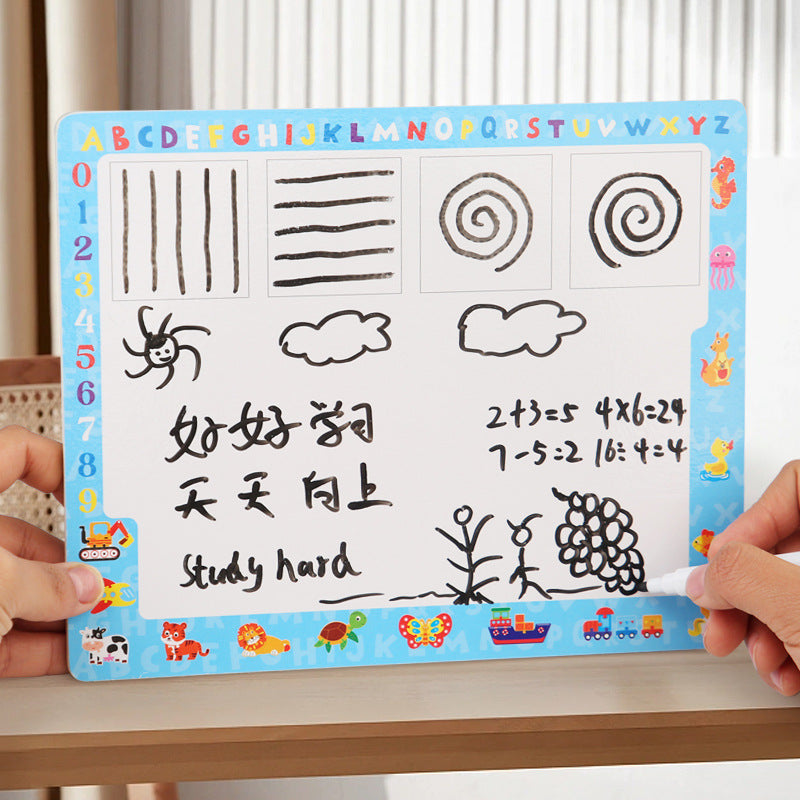 ABCDEFGHIJKLMNOPQRSTUVWXYZ
0
1
2
3
4
5
6
7
8
9
好好学习
天天向上
Study hard
2+3=5 4×6=24
7-5=2 16÷4=4